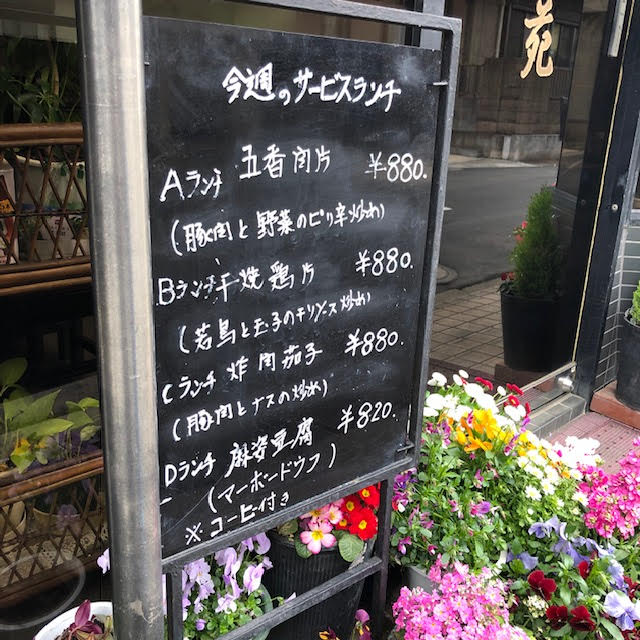 苑
今週のサービスランチ
Aランチ 五香肉片 ¥880.
(豚肉と野菜のピリ辛炒め)
Bランチ 干焼鶏片 ¥880.
(若鳥と玉子のチリソース炒め)
Cランチ 炸肉茄子 ¥880.
(豚肉とナスの炒め)
Dランチ 麻婆豆腐 ¥820.
(マーボードウフ)
※コーヒ付き